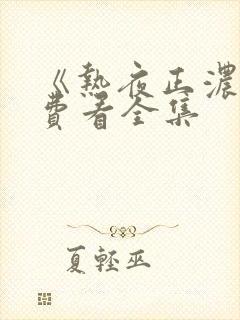 《熱夜正濃
費看全集
夏輕巫